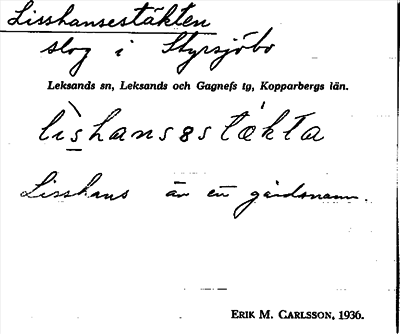 Lisshansestäkten
slog i Styrsjöbo
Leksands sn, Leksands och Gagnefs tg, Kopparbergs län.
lìshansɘstækta
Lisshans är ett gårdsnamn.
ERIK M. CARLSSON, 1936.